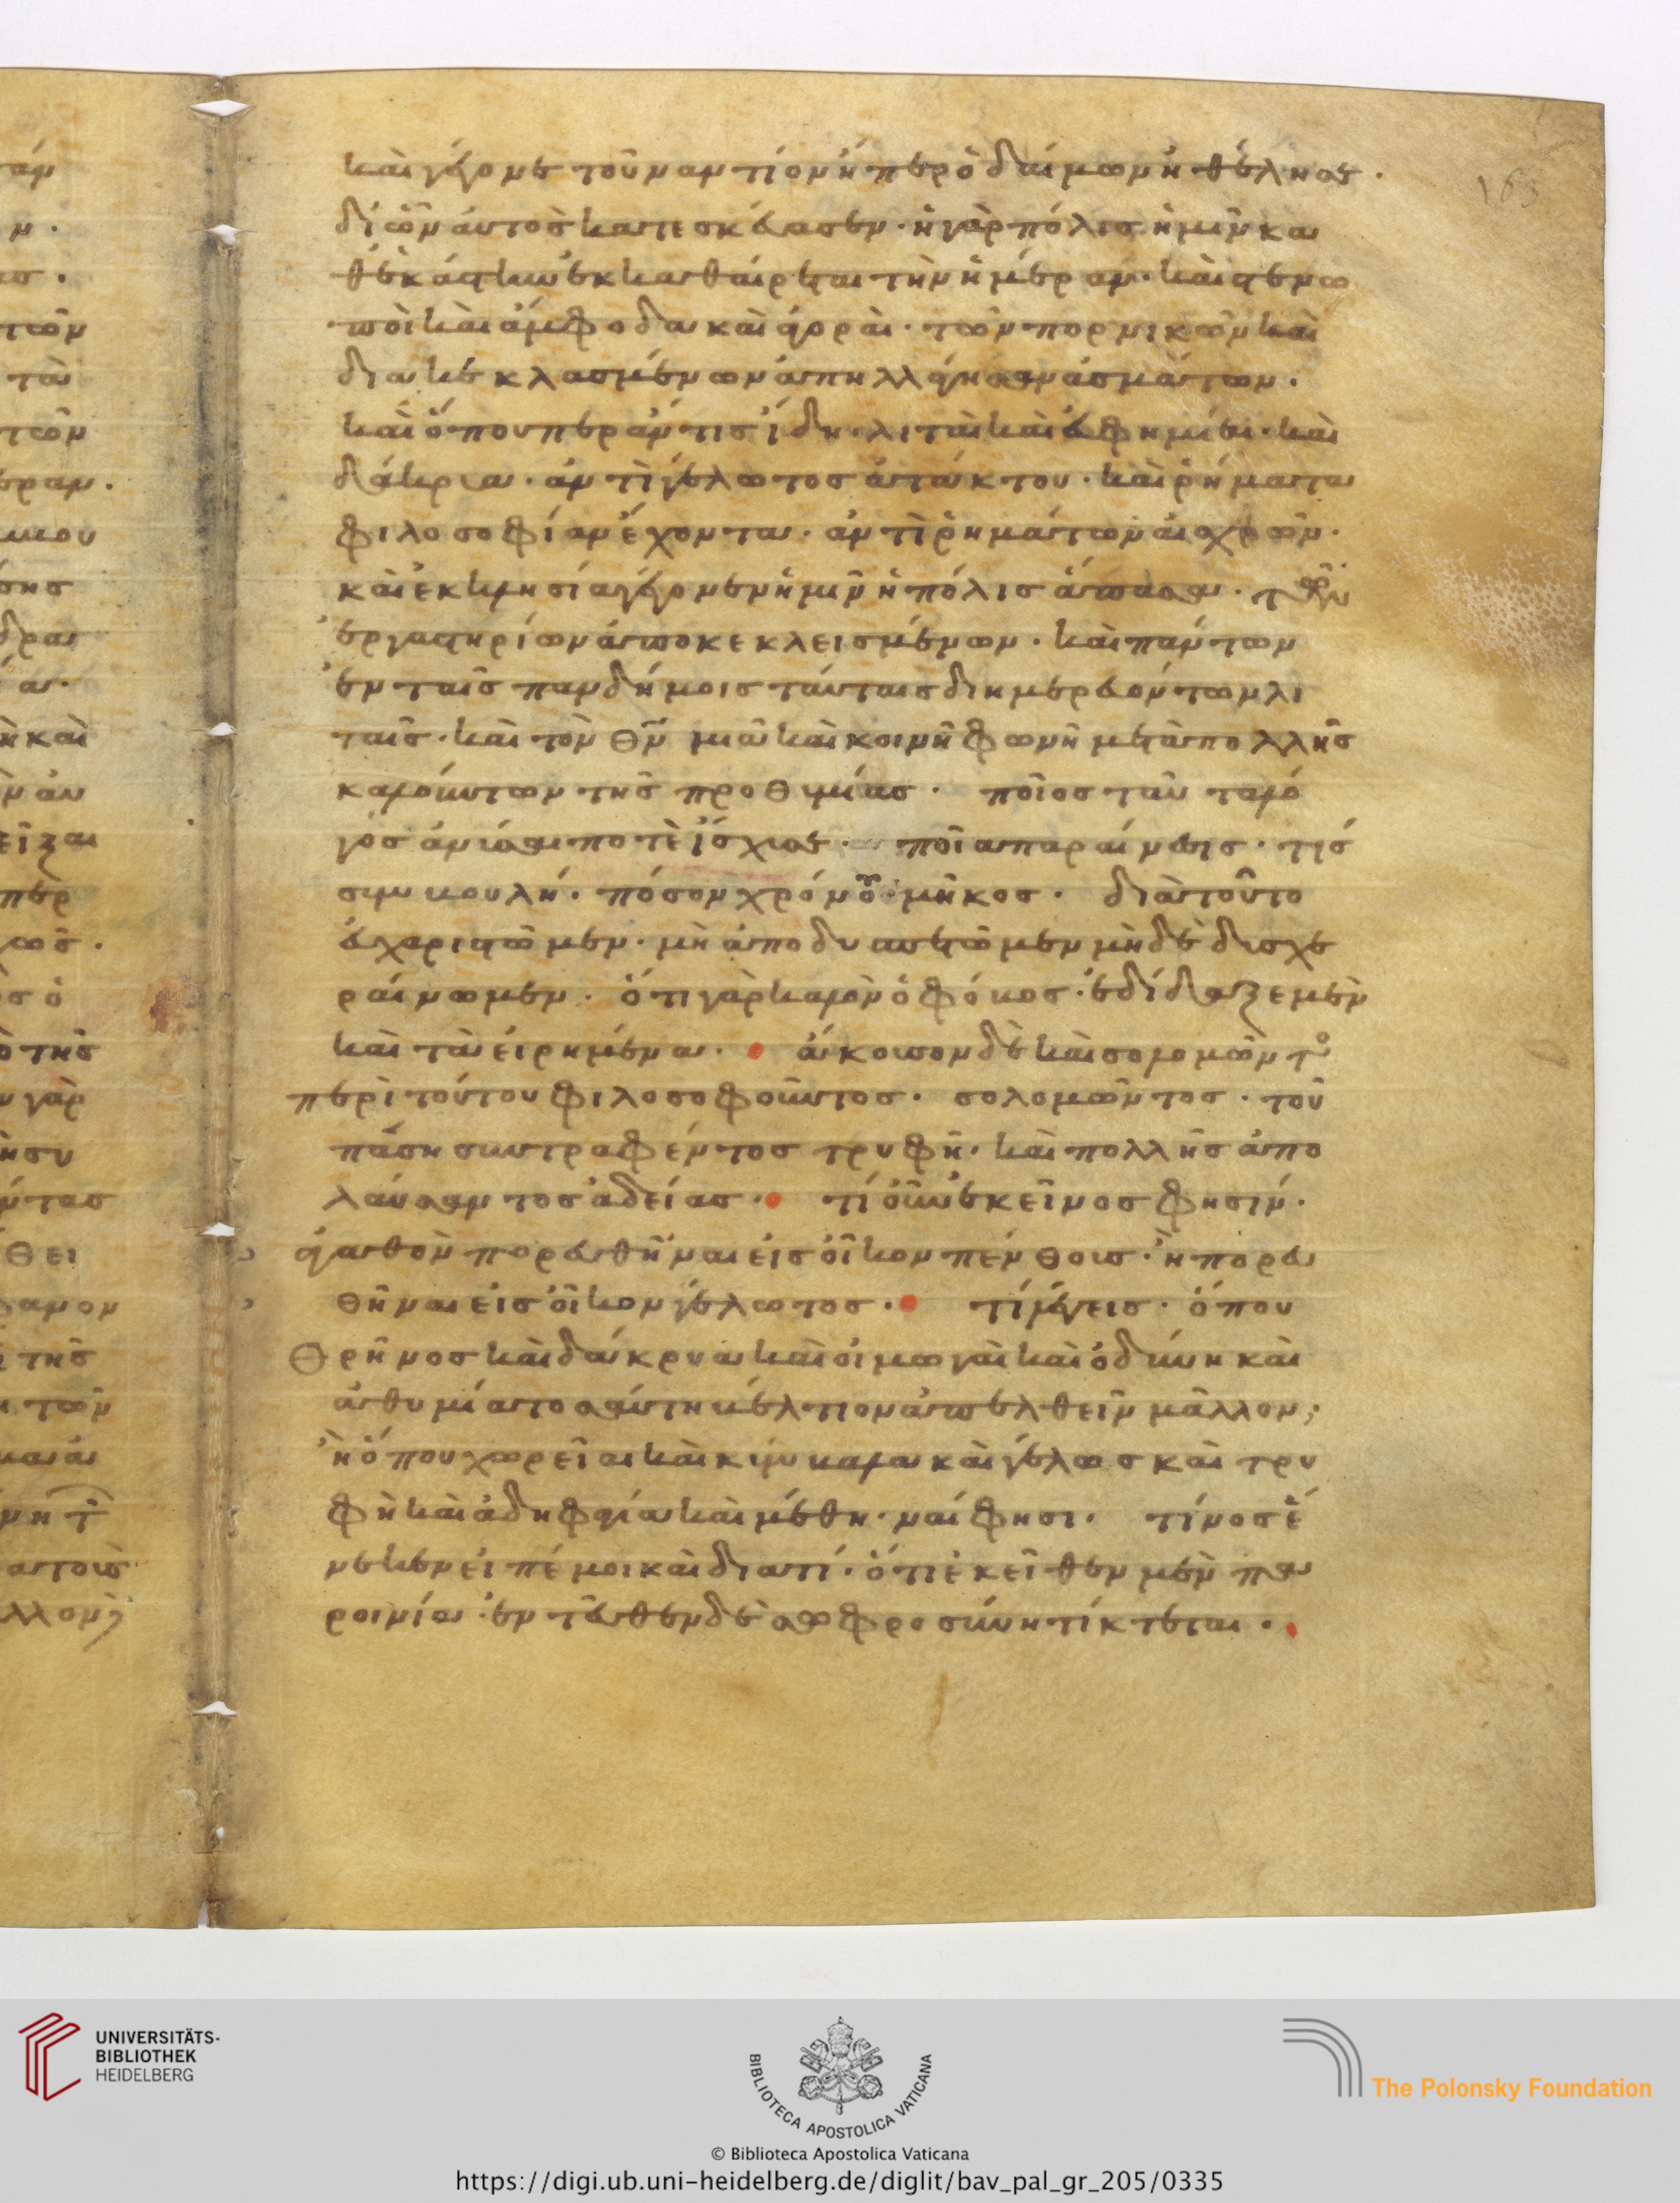 163
καὶ γέγονε τοὐναντίον ἤπερ ὁ δαίμων ἠθέλησε.
δι᾽ ὧν αὐτὸς κατεσκεύασεν. ἡ γὰρ πόλις ἡμῖν κα
θ᾽ ἑκάστην ἐκκαθαίρεται τὴν ἡμέραν. καὶ στενω
ποὶ καὶ ἄμφοδα καὶ ἀγοραὶ. τῶν πορνικῶν καὶ
διακεκλασμένων ἀπηλλάγησαν ἀσμάτων.
καὶ ὅπουπερ ἄν τις ἴδη. λιταὶ καὶ εὐφημίαι. καὶ
δάκρυα. ἀντὶ γέλωτος ἀτάκτου. καὶ ῥήματα
φιλοσοφίαν ἔχοντα. ἀντὶ ῥημάτων αἰσχρῶν.
καὶ ἐκκλησία γέγονεν ἡμῖν ἡ πόλις ἅπασα. τῶν
ἐργαστηρίων ἀποκεκλεισμένων. καὶ πάντων
ἐν ταῖς πανδήμοις ταύταις διημερευόντων λι
ταῖς. καὶ τὸν θν μιᾶ καὶ κοινῆ φωνῆ μετὰ πολλῆς
καλούντων τῆς προθυμίας. ποῖος ταῦτα λό
γος ἀνύσαι ποτὲ ἴσχυσε. ποία παραίνεσις. τίς
συμβουλή. πόσον χρόνου μῆκος. διὰ τοῦτο
εὐχαριστῶμεν. μὴ ἀποδυσπετῶμεν μηδὲ δυσχε
ραίνωμεν. ὅτι γὰρ καλὸν ὁ φόβος. ἐδίδαξε μὲν
καὶ τὰ εἰρημένα. ἄκουσον δὲ καὶ σολομῶντο
περὶ τούτου φιλοσοφοῦντος. σολομῶντος. τοῦ
πάση συντραφέντος τρυφῆ. καὶ πολλῆς ἀπο
λαύσαντος ἀδείας. τί οὖν ἐκεῖνος φησίν.
ἀγαθὸν πορευθῆναι εἰς οἶκον πένθους. ἢ πορευ
θῆναι εἰς οἶκον γέλωτος. τί λέγεις. ὅπου
θρῆνος καὶ δάκρυα καὶ οἰμωγαὶ καὶ ὀδύνη καὶ
ἀθυμία τοσαύτη βέλτιον ἀπελθεῖν μᾶλλον;
ἢ ὅπου χορεῖαι καὶ κύμβαλα καὶ γέλως καὶ τρυ
φὴ καὶ ἀδηφαγία καὶ μέθη. ναί φησι. τίνος ἕ
νεκεν εἰπέ μοι καὶ διατί. ὅτι ἐκεῖθεν μὲν πα
ροινία. ἐντεῦθεν δὲ σωφροσύνη τίκτεται.
UNIVERSITÄTS-
BIBLIOTHEK
HEIDELBERG
BIBLIOTECA APOSTOLICA VATICANA
The Polonsky Foundation
© Biblioteca Apostolica Vaticana
https://digi.ub.uni-heidelberg.de/diglit/bav_pal_gr_205/0335